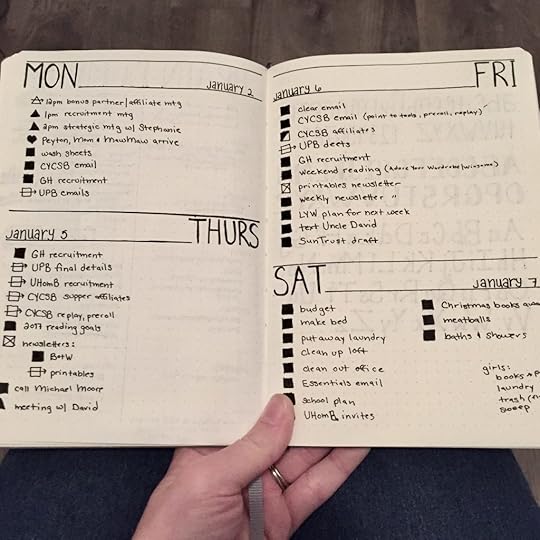 MON
January 2
12pm bonus partner/affiliate mtg
1pm recruitment mtg
2pm strategic mtg w/ Stephanie
Peyton, Mom & MawMaw arrive
wash sheets
CYCSB email
GH recruitment
UPB emails
THURS
January 5
GH recruitment
UPB final details
UHomB recruitment
CYCSB supper affiliates
CYCSB replay, preroll
2017 reading goals
newsletters:
BotW
printables
call Michael Moor
meeting w/ David
FRI
January 6
clear email
CYCSB email (point to tools, preroll, replay)
CYCSB affiliates
UPB deets
GH recruitment
weekend reading (Adore Your Wardrobe/Winsome)
printables newsletter
weekly newsletter
LYW plan for next week
text Uncle David
SunTrust draft
SAT
January 7
budget
make bed
put away laundry
clean up loft
clean out office
Essentials email
school plan
UHomB invites
Christmas books
meatballs
baths & showers
girls:
books +
laundry
trash
sweep